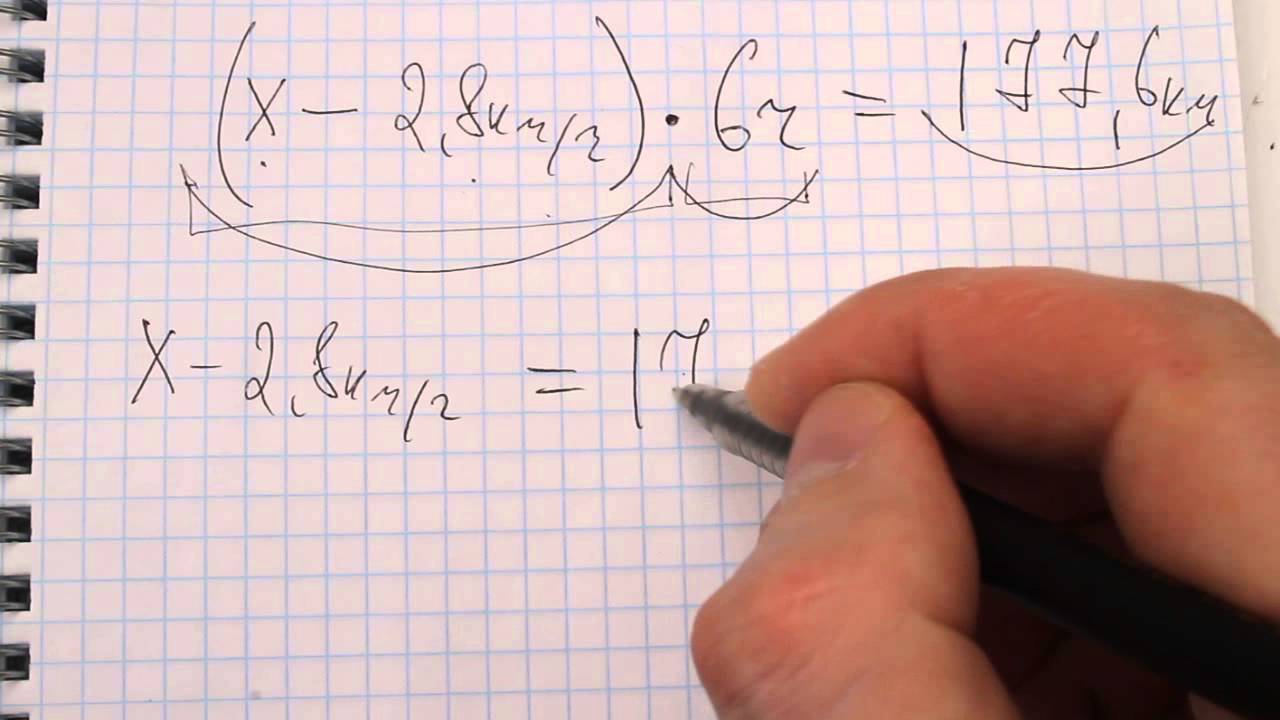 (x - 2,8км/ч) · 6ч = 177,6км
x - 2,8км/ч = 17